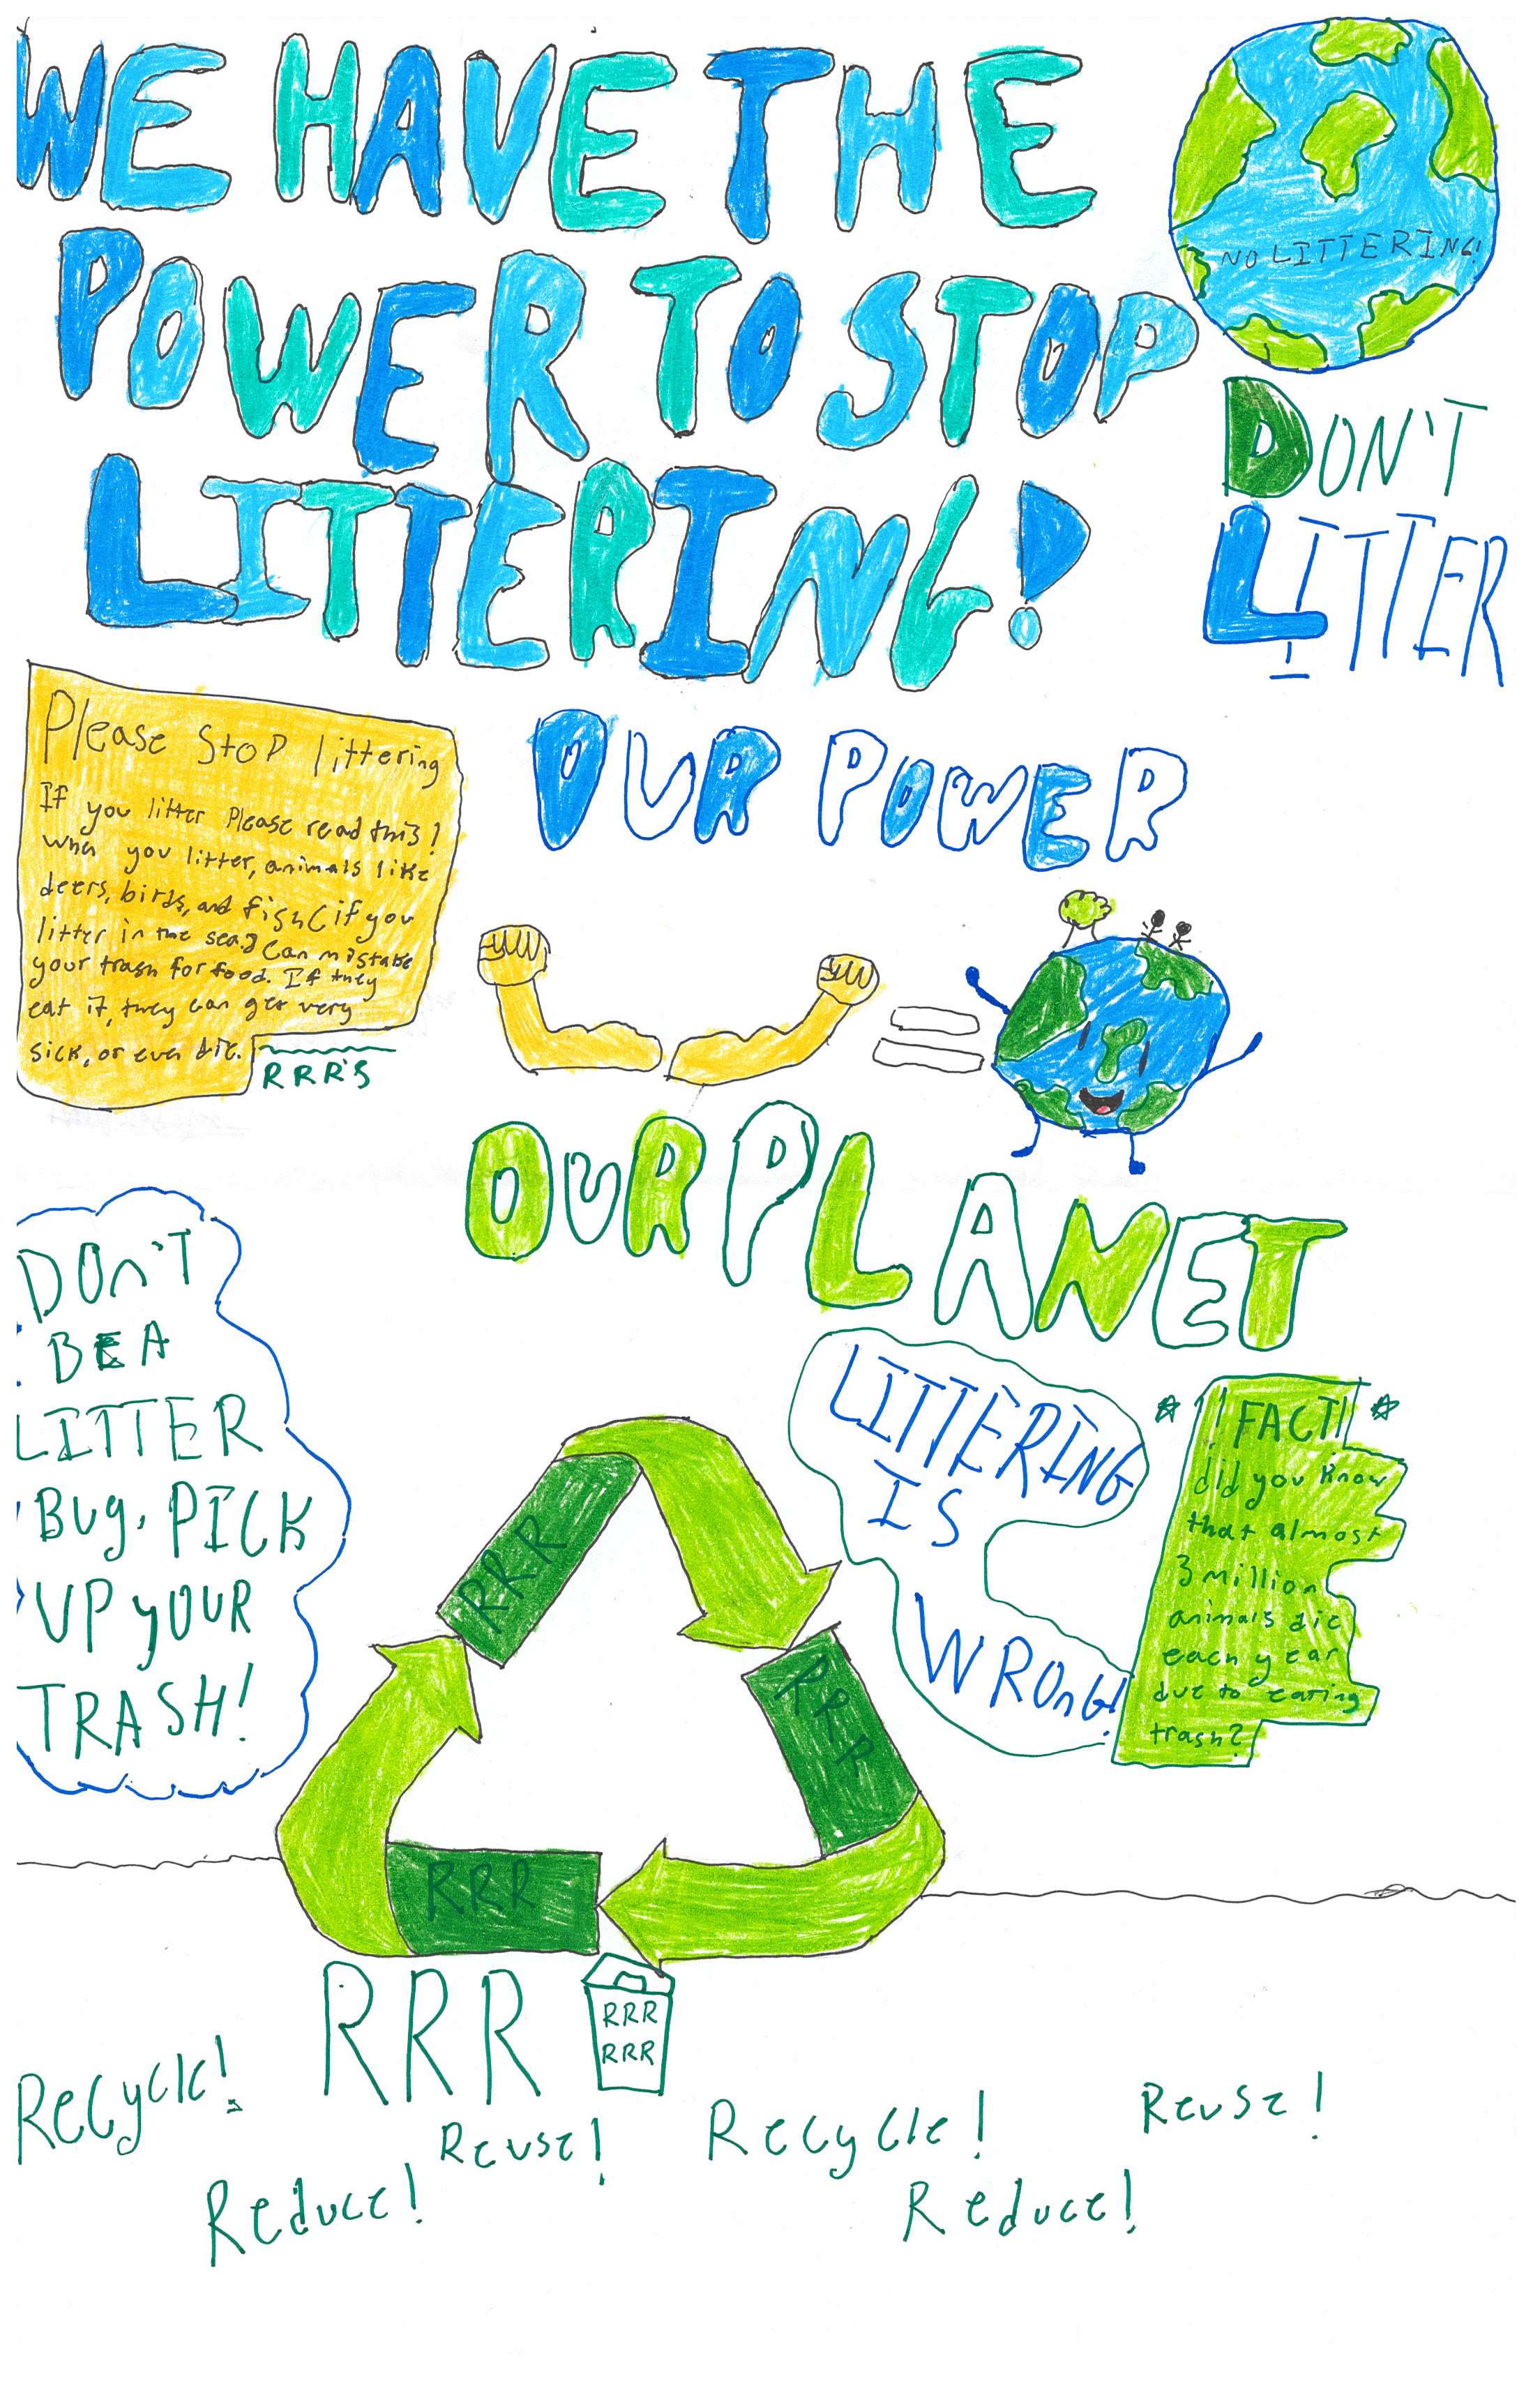 WE HAVE THE
POWER TO STOP
LITTERING!
NO LITTERING!
DON'T
LITTER
Please stop littering
If you litter Please read this!
when you litter, animals like
deers, birds, and fish (if you
litter in the sea.) can mistake
your trash for food. If they
eat it, they can get very
sick, or even die.
RRR'S
OUR POWER
=
OUR PLANET
DOn'T
BE A
LITTER
Bug, PICK
UP yOUR
TRASH!
LITTERING
IS
WROnG!
!! FACT!!
did you know
that almost
3 million
animals die
each year
due to eating
trash?
RRR
RRR
RRR
RRR
RRR
RRR
Recycle!
Reduce!
Reuse!
Recycle!
Reduce!
Reuse!